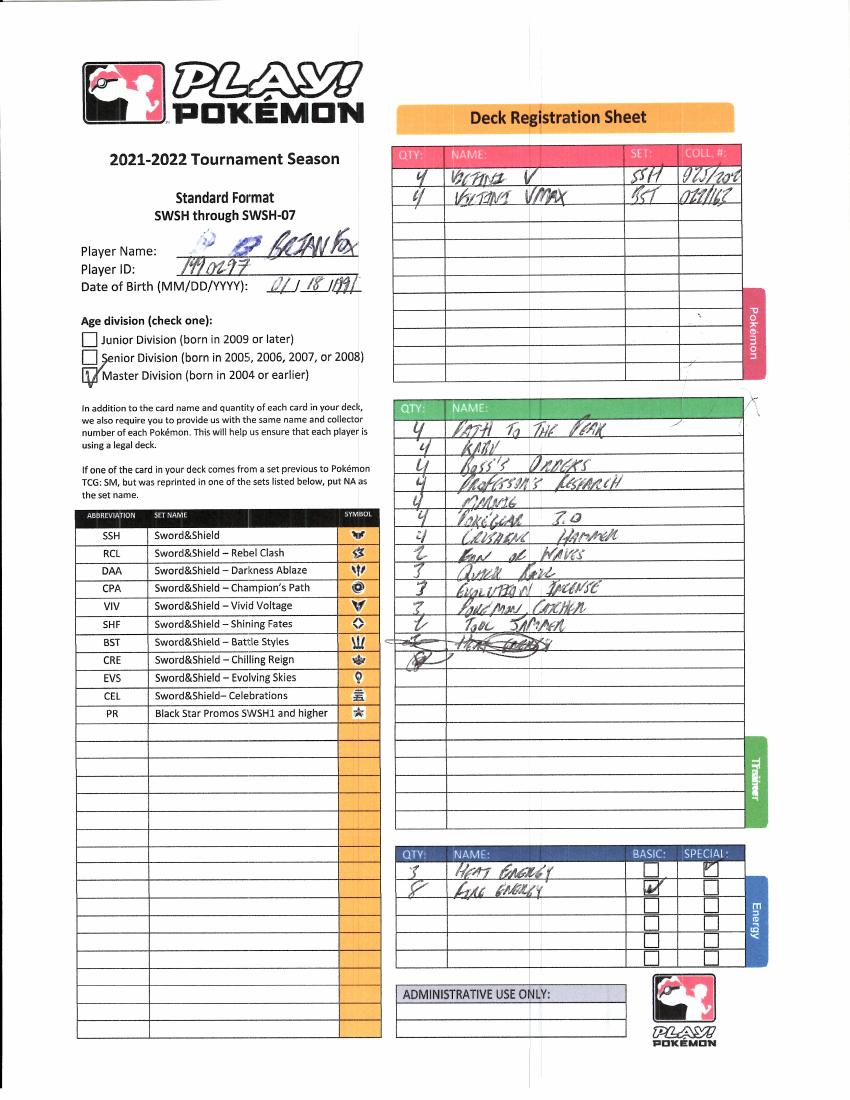 PLAY!
POKÉMON
2021-2022 Tournament Season
Standard Format
SWSH through SWSH-07
Player Name: BRIAN FOX
Player ID: 1990297
Date of Birth (MM/DD/YYYY): 01/18/1991
Age division (check one):
Junior Division (born in 2009 or later)
Senior Division (born in 2005, 2006, 2007, or 2008)
Master Division (born in 2004 or earlier)
In addition to the card name and quantity of each card in your deck,
we also require you to provide us with the same name and collector
number of each Pokémon. This will help us ensure that each player is
using a legal deck.
If one of the card in your deck comes from a set previous to Pokémon
TCG: SM, but was reprinted in one of the sets listed below, put NA as
the set name.
ABBREVIATION SET NAME SYMBOL
SSH Sword&Shield
RCL Sword&Shield – Rebel Clash
DAA Sword&Shield – Darkness Ablaze
CPA Sword&Shield – Champion's Path
VIV Sword&Shield – Vivid Voltage
SHF Sword&Shield – Shining Fates
BST Sword&Shield – Battle Styles
CRE Sword&Shield – Chilling Reign
EVS Sword&Shield – Evolving Skies
CEL Sword&Shield– Celebrations
PR Black Star Promos SWSH1 and higher
Deck Registration Sheet
QTY: NAME: SET: COLL. #:
4 VICTINI V SSH 025/202
4 VICTINI VMAX BST 022/163
Pokémon
QTY: NAME:
4 PATH TO THE PEAK
4
4 BOSS'S ORDERS
4 PROFESSOR'S RESEARCH
4 MARNIE
4 POKÉGEAR 3.0
4 CRUSHING HAMMER
2 FAN OF WAVES
3 QUICK BALL
3 EVOLUTION INCENSE
3 POKEMON CATCHER
2 TOOL JAMMER
HEAT ENERGY
Trainer
QTY: NAME: BASIC: SPECIAL:
3 HEAT ENERGY
8 FIRE ENERGY
Energy
ADMINISTRATIVE USE ONLY:
PLAY!
POKÉMON